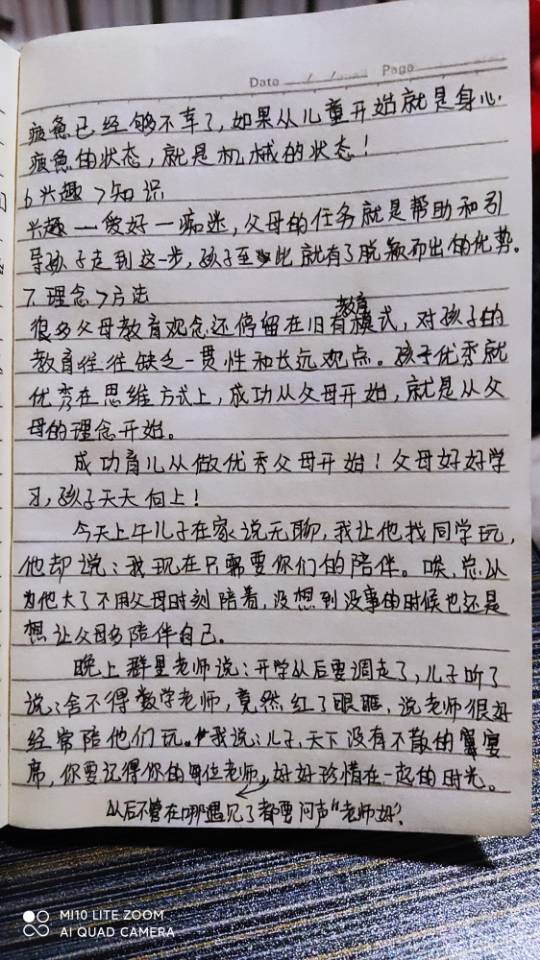 Date / / Page
疲惫已经够不幸了,如果从儿童开始就是身心
疲惫的状态,就是机械的状态!
6 兴趣>知识
兴趣一爱好一痴迷,父母的任务就是帮助和引
导孩子走到这一步,孩子至此就有了脱颖而出的优势。
7. 理念>方法
很多父母教育观念还停留在旧有教育模式,对孩子的
教育往往缺乏一贯性和长远观点。孩子优秀就
优秀在思维方式上,成功从父母开始,就是从父
母的理念开始。
成功育儿从做优秀父母开始!父母好好学
习,孩子天天向上!
今天上午儿子在家说无聊,我让他找同学玩,
他却说:我现在只需要你们的陪伴。唉,总以
为他大了不用父母时刻陪着,没想到没事的时候也还是
想让父母多陪伴自己。
晚上群里老师说:开学以后要调走了,儿子听了
说:舍不得数学老师,竟然红了眼眶,说老师很好
经常陪他们玩。我说:儿子,天下没有不散的宴
席,你要记得你的每位老师,好好珍惜在一起的时光。
以后不管在哪遇见了都要问声“老师好”。
MI 10 LITE ZOOM
AI QUAD CAMERA